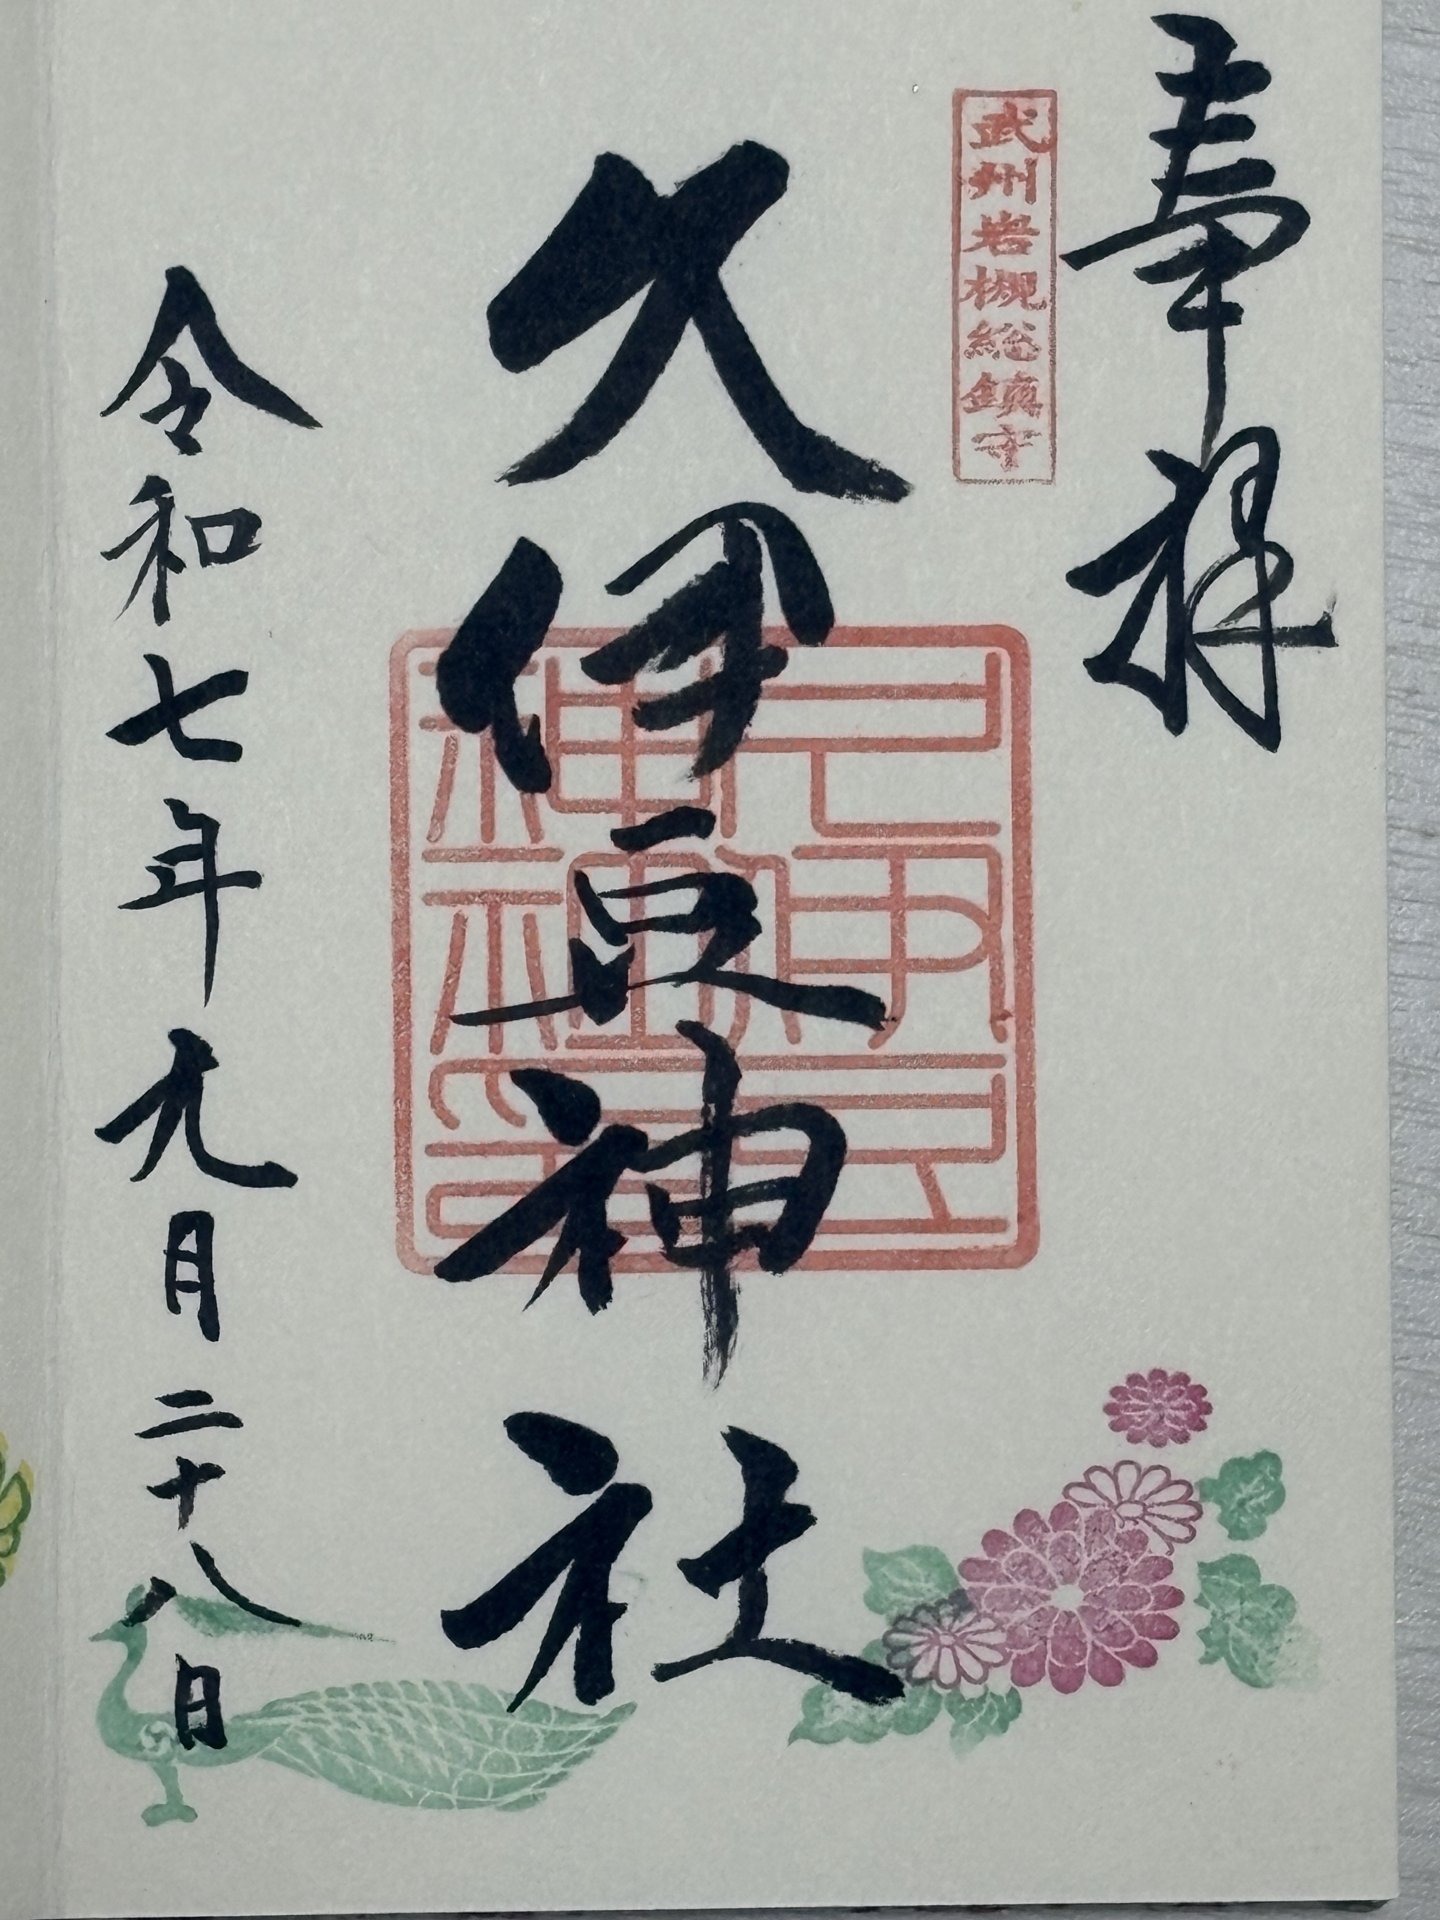 奉拝
武州岩槻総鎮守
久伊豆神社
令和七年九月二十八日